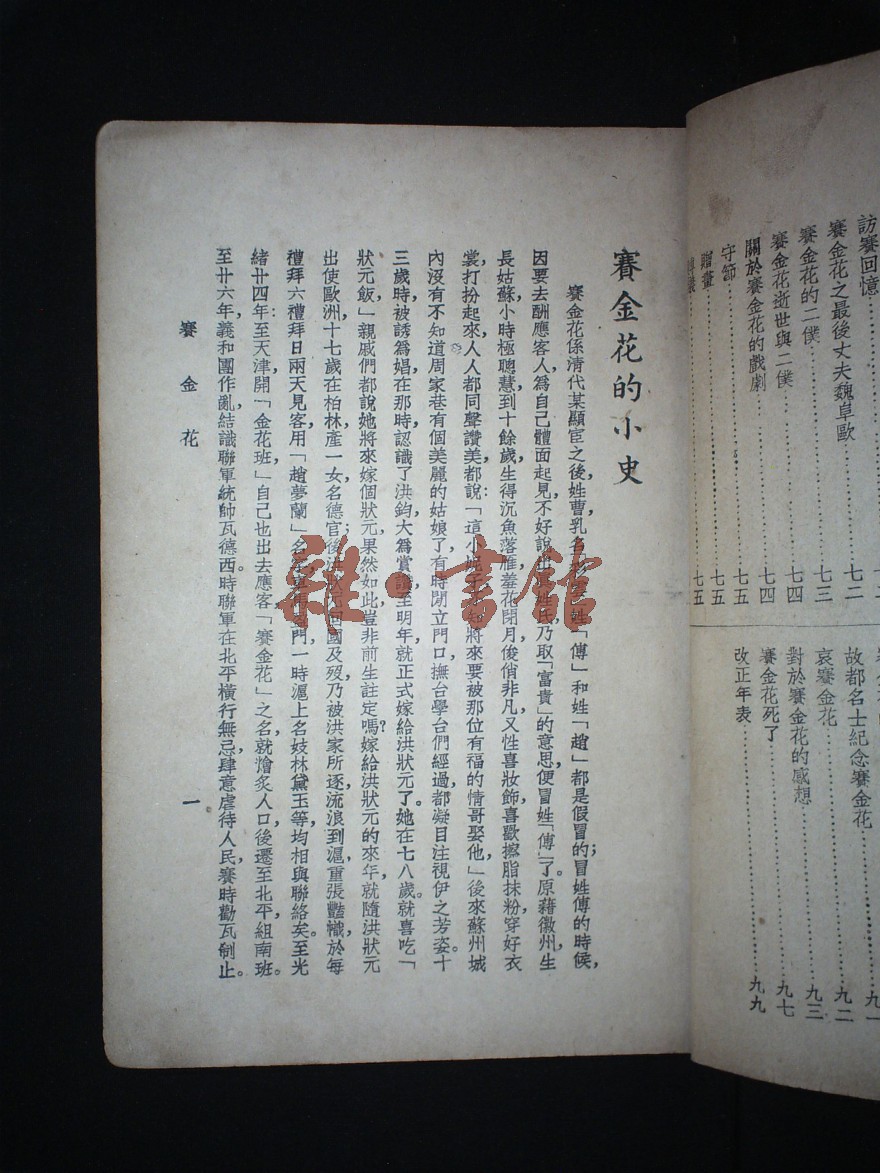 訪賽回憶
賽金花之最後丈夫魏阜歐……七二
賽金花的二僕……七三
賽金花逝世與二僕……七四
關於賽金花的戲劇……七四
守節……七五
贈畫……七五
七五
故都名士紀念賽金花……九一
哀賽金花……九二
對於賽金花的感想……九三
賽金花死了……九七
改正年表……九九
賽金花的小史
賽金花係清代某顯宦之後，姓曹，乳名 姓「傅」和姓「趙」都是假冒的；冒姓傅的時候，
因要去酬應客人，爲自己體面起見，不好說出 姓氏，乃取「富貴」的意思，便冒姓「傅」了。原藉徽州，生
長姑蘇，小時極聰慧，到十餘歲，生得沉魚落雁，羞花閉月，俊俏非凡，又性喜妝飾，喜歡擦脂抹粉，穿好衣
裳，打扮起來，人人都同聲讚美，都說：「這小 知將來要被那位有福的情哥娶他，」後來蘇州城
內沒有不知道周家巷有個美麗的姑娘了，有時閒立門口，撫台學台們經過，都凝目注視伊之芳姿。十
三歲時被誘爲娼，在那時認識了洪鈞，大爲賞 至明年就正式嫁給洪狀元了。她在七八歲就喜吃「
狀元飯，」親戚們都說她將來嫁個狀元，果然如此，豈非前生註定嗎？嫁給洪狀元的來年，就隨洪狀元
出使歐洲，十七歲在柏林產一女，名德官；後洪狀元回國及歿，乃被洪家所逐，流浪到滬，重張豔幟，於每
禮拜六禮拜日兩天見客，用「趙夢蘭」名 門，一時滬上名妓林黛玉等，均相與聯絡矣。至光
緒廿四年：至天津，開「金花班，」自己也出去應客，「賽金花」之名，就燴炙人口，後遷至北平，組南班。
至廿六年，義和團作亂，結識聯軍統帥瓦德西。時聯軍在北平橫行無忌，肆意虐待人民，賽時勸瓦制止。
賽金花
一